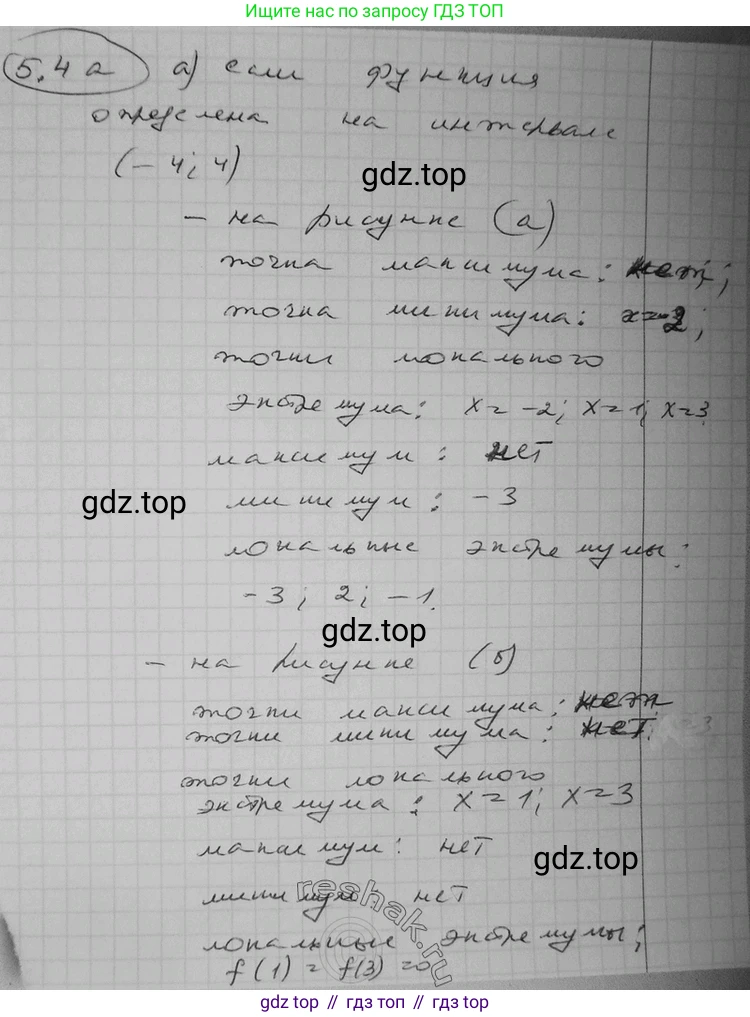 Ищите нас по запросу ГДЗ ТОП
5.4 а а) если функция
определена на интервале
(-4; 4)
gdz.top
- на рисунке (а)
точка максимума: нет;
точка минимума: x=-2;
точки локального
экстремума: x=-2; x=1; x=3
максимум: нет
gdz.top
минимум: -3
локальные экстремумы:
-3; 2; -1.
gdz.top
- на рисунке (б)
точки максимума: нет
точки минимума: нет
точки локального
экстремума: x=1; x=3
максимум: нет
gdz.top
минимум нет
reshak.ru
локальные экстремумы:
f(1) = f(3) =0
gdz.top // гдз топ // гдз.top